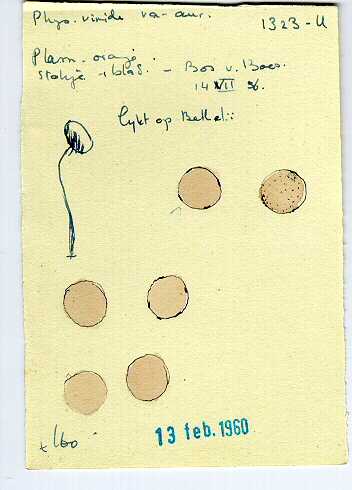 Phys. viride var. aur.
1323-U
Plasm. oranje.
Stokje + blad. – Bos v. Baes.
14 VII 56.
lykt op Betkei:
± 160
13 feb. 1960